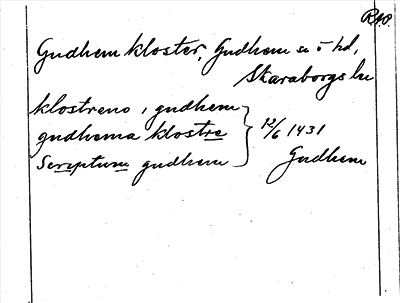 RAP.
Gudhem kloster, Gudhem sn o hd,
Skaraborgs län
klostreno i gudhem
gudhema klostre } 12/6 1431
Scriptum gudhem Gudhem